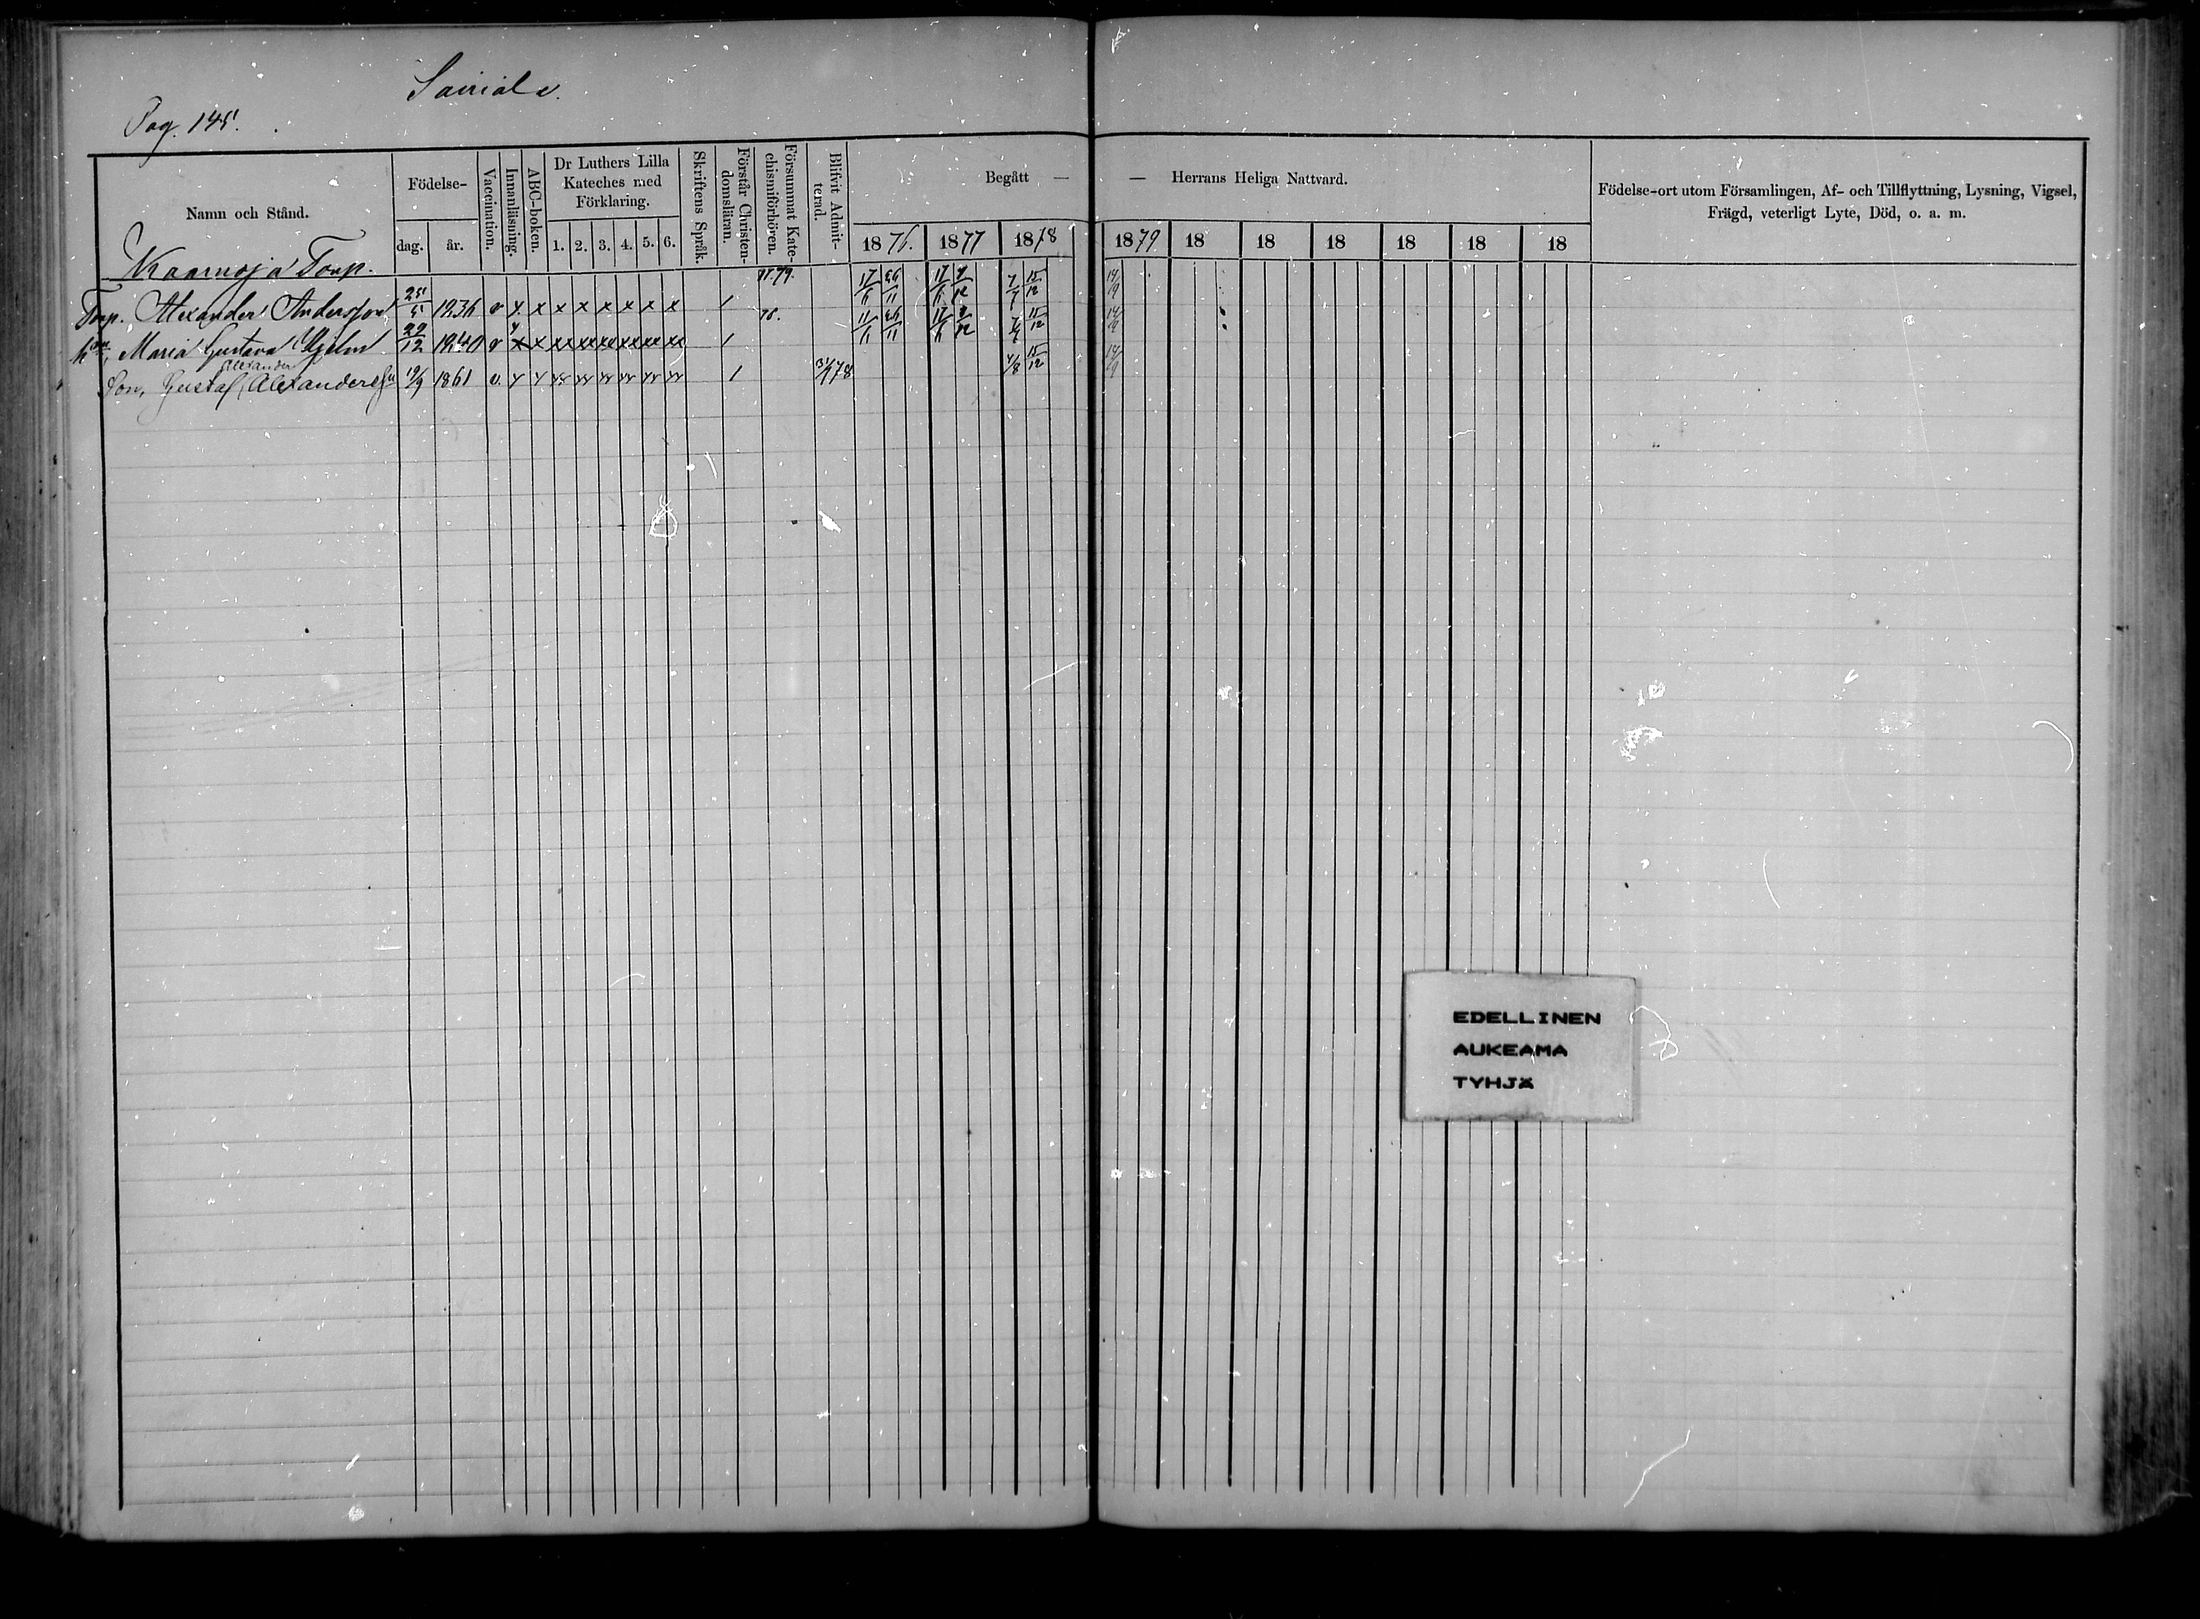 Sairiala.
Pag. 145.
Namn och Stånd. Födelse- dag. år. Vaccination. Innanläsning. ABC-boken. Dr Luthers Lilla Kateches med Förklaring. 1. 2. 3. 4. 5. 6. Skriftens Språk. Förstår Christendomsläran. Försummat Katechismiförhören. Blifvit Admitterad. Begått — — Herrans Heliga Nattvard. Födelse-ort utom Församlingen, Af- och Tillflyttning, Lysning, Vigsel, Frägd, veterligt Lyte, Död, o. a. m.
1876. 1877 1878 1879 18 18 18 18 18 18
Kaarnoja Torp.
Torp. Alexander Andersson 25/5 1836 v y. x x x x x x x / 17/6 26/11 17/6 9/12 7/7 15/12 14/9
Maria Gustava 22/12 1840 v x x xx xx xx xx xx xx / 78. 11/6 26/11 17/6 9/12 7/7 15/12 14/9
Alexander
Son, Gustaf Alexandersson 19/9 1861 v. y y / 4/8 15/12 14/9
EDELLINEN
AUKEAMA
TYHJÄ